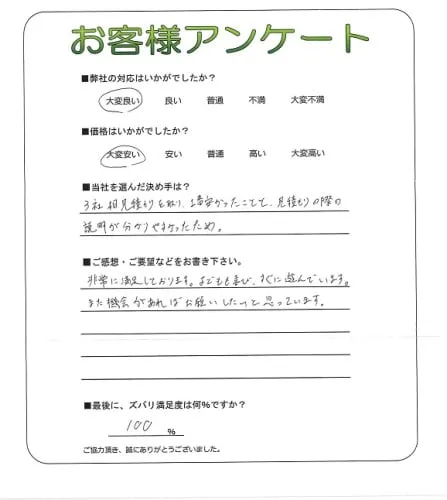 お客様アンケート
■弊社の対応はいかがでしたか?
大変良い 良い 普通 不満 大変不満
■価格はいかがでしたか?
大変安い 安い 普通 高い 大変高い
■当社を選んだ決め手は?
3社相見積りを取り、1番安かったことと、見積もりの際の
説明が分かりやすかったため。
■ご感想・ご要望などをお書き下さい。
非常に満足しております。子どもも喜び、すぐに遊んでいます。
また機会があればお願いしたいと思っています。
■最後に、ズバリ満足度は何%ですか?
100 %
ご協力頂き、誠にありがとうございました。